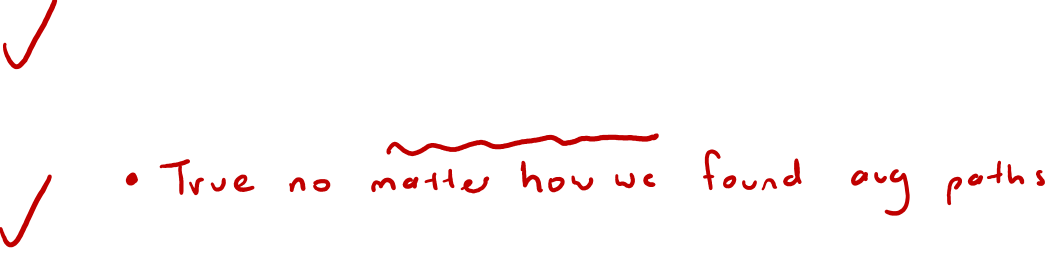 • True no matter how we found aug paths